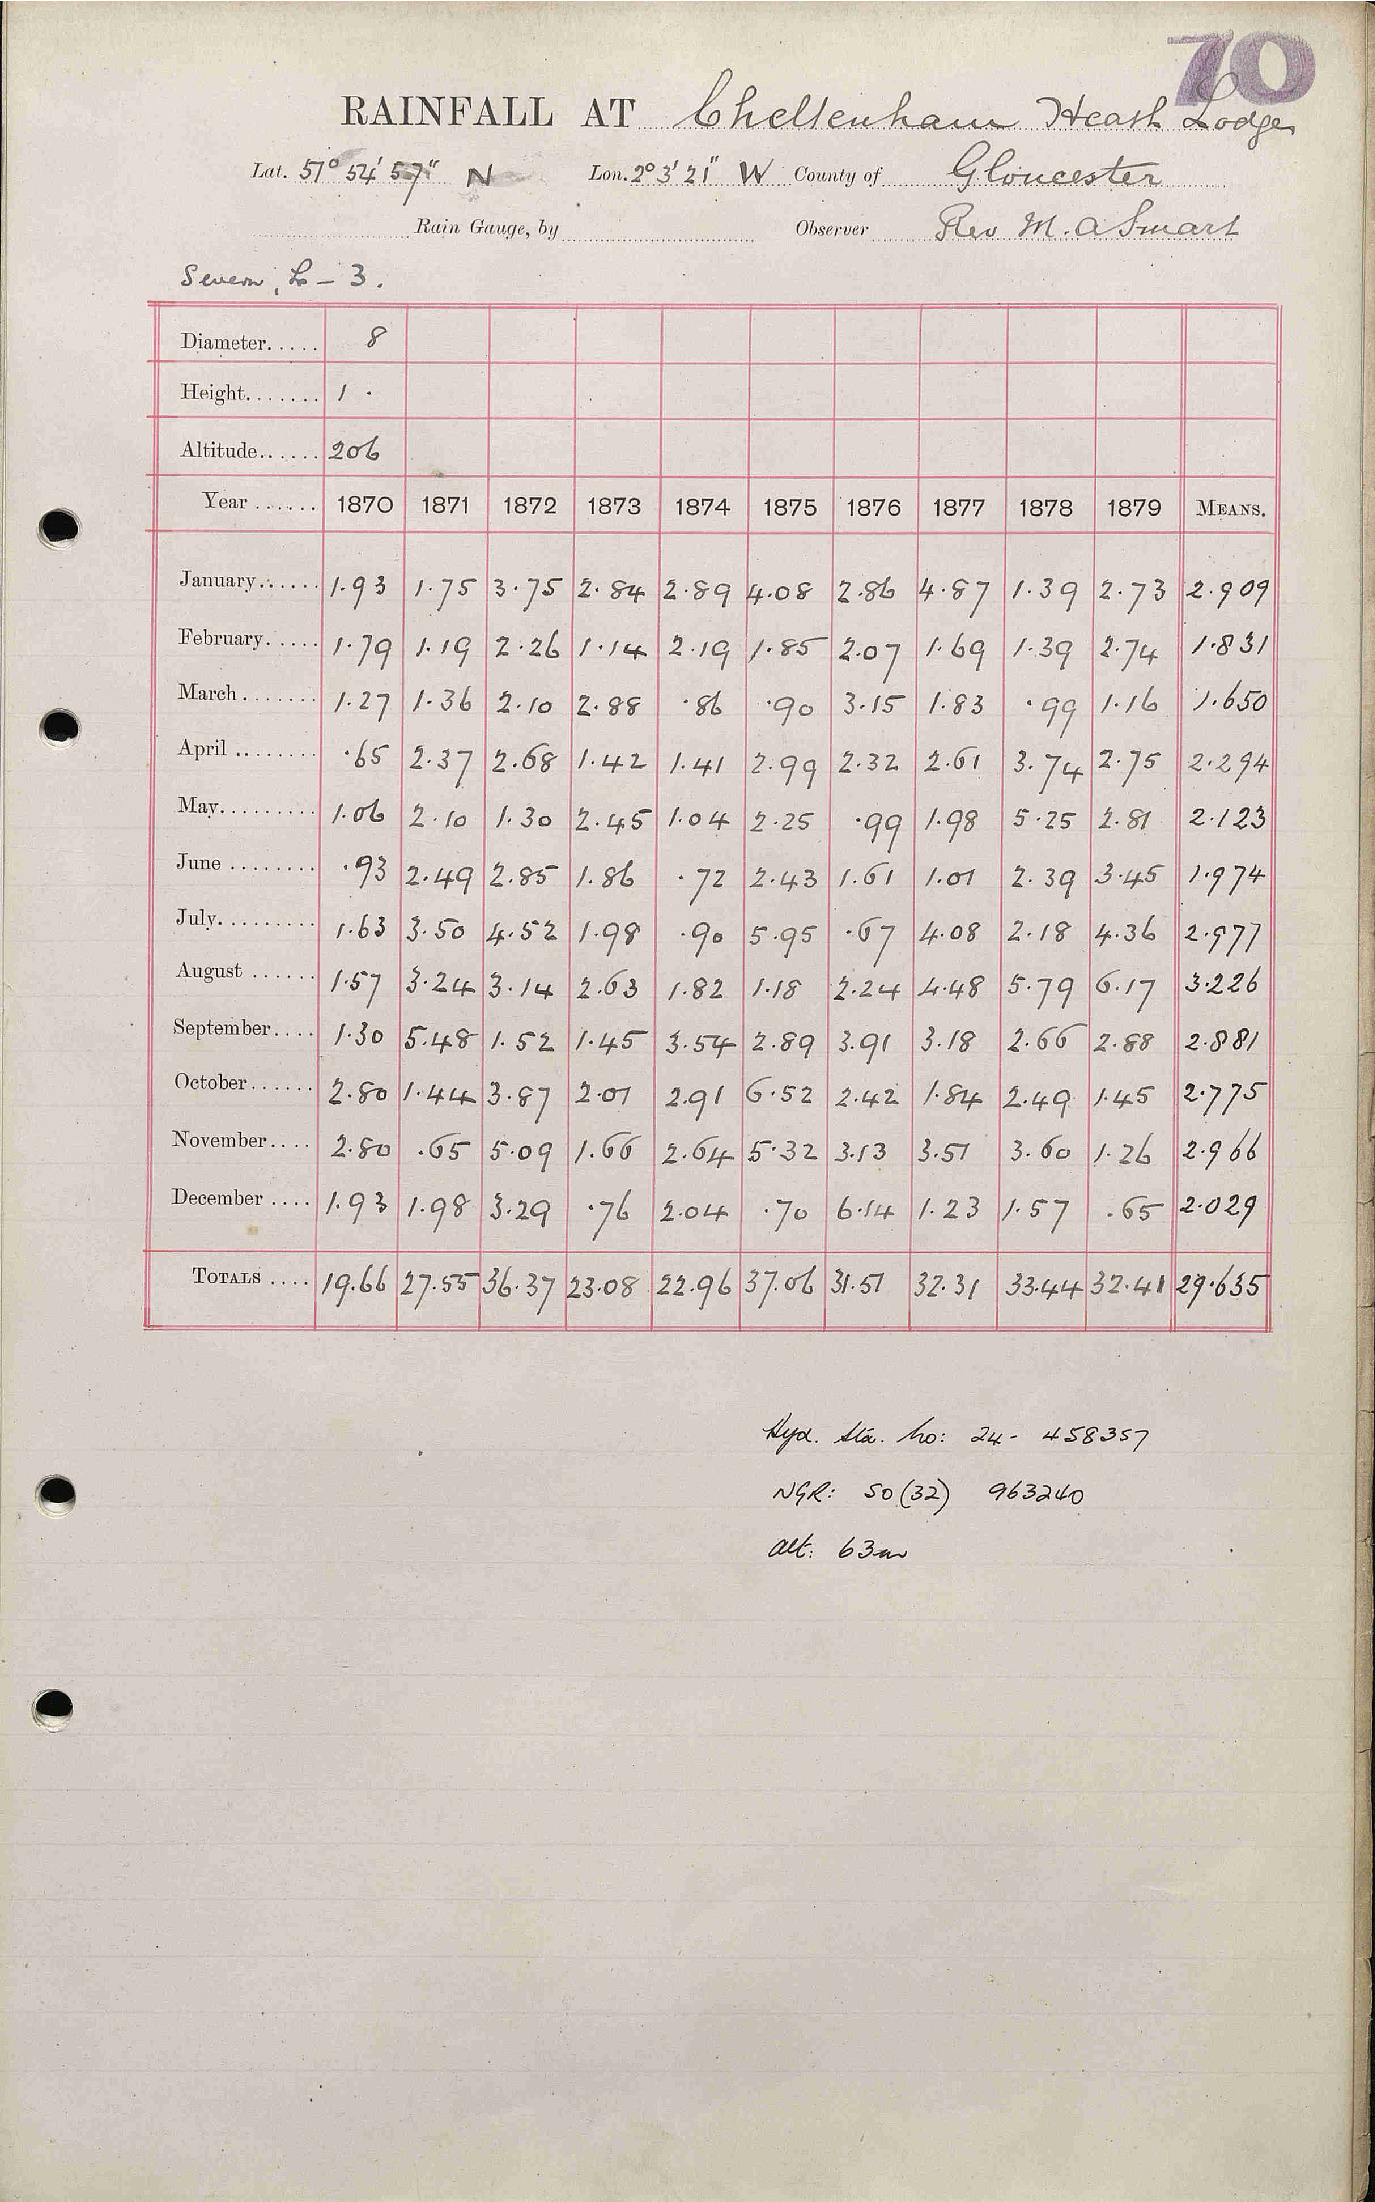 70
RAINFALL AT Cheltenham Heath Lodge
Lat. 51° 54' 57" N Lon. 2° 3' 21" W County of Gloucester
Rain Gauge, by Observer Rev M. A Smart
Severn, L - 3.
Diameter..... 8
Height....... 1 ·
Altitude...... 206
Year ...... 1870 1871 1872 1873 1874 1875 1876 1877 1878 1879 MEANS.
January...... 1.93 1.75 3.75 2.84 2.89 4.08 2.86 4.87 1.39 2.73 2.909
February..... 1.79 1.19 2.26 1.14 2.19 1.85 2.07 1.69 1.39 2.74 1.831
March....... 1.27 1.36 2.10 2.88 .86 .90 3.15 1.83 .99 1.16 1.650
April ........ .65 2.37 2.68 1.42 1.41 2.99 2.32 2.61 3.74 2.75 2.294
May......... 1.06 2.10 1.30 2.45 1.04 2.25 .99 1.98 5.25 2.81 2.123
June ........ .93 2.49 2.85 1.86 .72 2.43 1.61 1.01 2.39 3.45 1.974
July......... 1.63 3.50 4.52 1.98 .90 5.95 .67 4.08 2.18 4.36 2.977
August ...... 1.57 3.24 3.14 2.63 1.82 1.18 2.24 4.48 5.79 6.17 3.226
September.... 1.30 5.48 1.52 1.45 3.54 2.89 3.91 3.18 2.66 2.88 2.881
October...... 2.80 1.44 3.87 2.01 2.91 6.52 2.42 1.84 2.49 1.45 2.775
November.... 2.80 .65 5.09 1.66 2.64 5.32 3.13 3.51 3.60 1.26 2.966
December .... 1.93 1.98 3.29 .76 2.04 .70 6.14 1.23 1.57 .65 2.029
TOTALS .... 19.66 27.55 36.37 23.08 22.96 37.06 31.51 32.31 33.44 32.41 29.635
Hyd. Sta. No: 24- 458357
NGR: SO (32) 963240
Alt: 63m